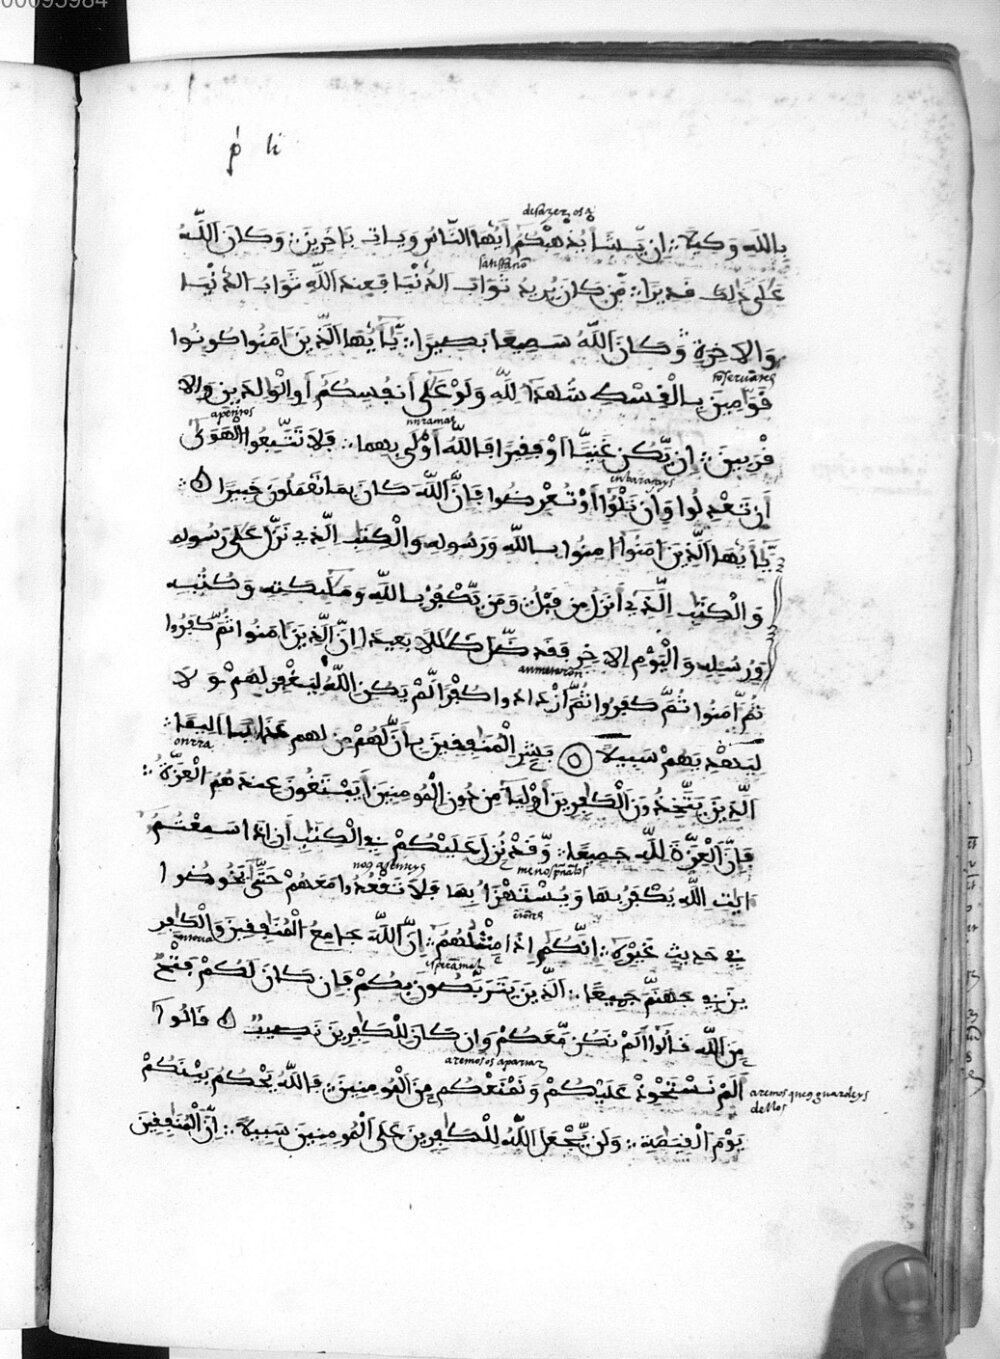 00095984
ꝓ li
desazer os a
بِاللَّهِ وَكِيلًا ∴ إِن يَّشَأْ يُذْهِبْكُمْ أَيُّهَا النَّاسُ وَيَاتِ بِـَٔاخَرِينَ ∴ وَكَانَ اللَّهُ
عَلَىٰ ذَٰلِكَ قَدِيرًا ∴ مَّن كَانَ يُرِيدُ ثَوَابَ الدُّنْيَا فَعِندَ اللَّهِ ثَوَابُ الدُّنْيَا
وَالَاخِرَةِ وَكَانَ اللَّهُ سَمِيعًا بَصِيرًا ∴ يَٰأَيُّهَا الَّذِينَ ءَامَنُوا كُونُوا
قَوَّٰمِينَ بِالْقِسْطِ شُهَدَآءَ لِلَّهِ وَلَوْ عَلَىٰ أَنفُسِكُمُ أَوِ الْوَٰلِدَيْنِ وَالَا
apetitos
قْرَبِينَ ∴ إِن يَّكُنْ غَنِيًّا أَوْ فَقِيرًا فَاللَّهُ أَوْلَىٰ بِهِمَا ∴ فَلَا تَتَّبِعُوا الْهَوَىٰ
أَن تَعْدِلُوا وَإِن تَلْوُۥا أَوْ تُعْرِضُوا فَإِنَّ اللَّهَ كَانَ بِمَا تَعْمَلُونَ خَبِيرًا
يَٰأَيُّهَا الَّذِينَ ءَامَنُوا ءَامِنُوا بِاللَّهِ وَرَسُولِهِ وَالْكِتَٰبِ الَّذِي نَزَّلَ عَلَىٰ رَسُولِهِ
وَالْكِتَٰبِ الَّذِي أَنزَلَ مِن قَبْلُ وَمَن يَّكْفُرْ بِاللَّهِ وَمَلَٰٓئِكَتِهِ وَكُتُبِهِ
وَرُسُلِهِ وَالْيَوْمِ الَاخِرِ فَقَد ضَّلَّ ضَلَٰلًا بَعِيدًا إِنَّ الَّذِينَ ءَامَنُوا ثُمَّ كَفَرُوا
ثُمَّ ءَامَنُوا ثُمَّ كَفَرُوا ثُمَّ ازْدَادُوا كُفْرًا لَّمْ يَكُنِ اللَّهُ لِيَغْفِرَ لَهُمْ وَلَا
لِيَهْدِيَهُمْ سَبِيلًا بَشِّرِ الْمُنَٰفِقِينَ بِأَنَّ لَهُمْ عَذَابًا الِيمًا ∴
onrra
الَّذِينَ يَتَّخِذُونَ الْكَٰفِرِينَ أَوْلِيَآءَ مِن دُونِ الْمُومِنِينَ أَيَبْتَغُونَ عِندَهُمُ الْعِزَّةَ ∴
فَإِنَّ الْعِزَّةَ لِلَّهِ جَمِيعًا ∴ وَقَدْ نُزِّلَ عَلَيْكُمْ فِي الْكِتَٰبِ أَنِ اذَا سَمِعْتُمُ
menospreciados
ءَايَٰتِ اللَّهِ يُكْفَرُ بِهَا وَيُسْتَهْزَأُ بِهَا فَلَا تَقْعُدُوا مَعَهُمْ حَتَّىٰ يَخُوضُوا
فِي حَدِيثٍ غَيْرِهِ ∴ إِنَّكُمُ إِذًا مِّثْلُهُمُ ∴ إِنَّ اللَّهَ جَامِعُ الْمُنَٰفِقِينَ وَالْكَٰفِرِ
ينَ فِي جَهَنَّمَ جَمِيعًا ∴ الَّذِينَ يَتَرَبَّصُونَ بِكُمْ فَإِن كَانَ لَكُمْ فَتْحٌ
مِّنَ اللَّهِ قَالُوا أَلَمْ نَكُن مَّعَكُمْ وَإِن كَانَ لِلْكَٰفِرِينَ نَصِيبٌ قَالُوا
aremos os apartar
أَلَمْ نَسْتَحْوِذْ عَلَيْكُمْ وَنَمْنَعْكُم مِّنَ الْمُومِنِينَ ∴ فَاللَّهُ يَحْكُمُ بَيْنَكُمْ
aremos queos guardeys
dellos
يَوْمَ الْقِيَٰمَةِ ∴ وَلَن يَّجْعَلَ اللَّهُ لِلْكَٰفِرِينَ عَلَى الْمُومِنِينَ سَبِيلًا ∴ إِنَّ الْمُنَٰفِقِينَ